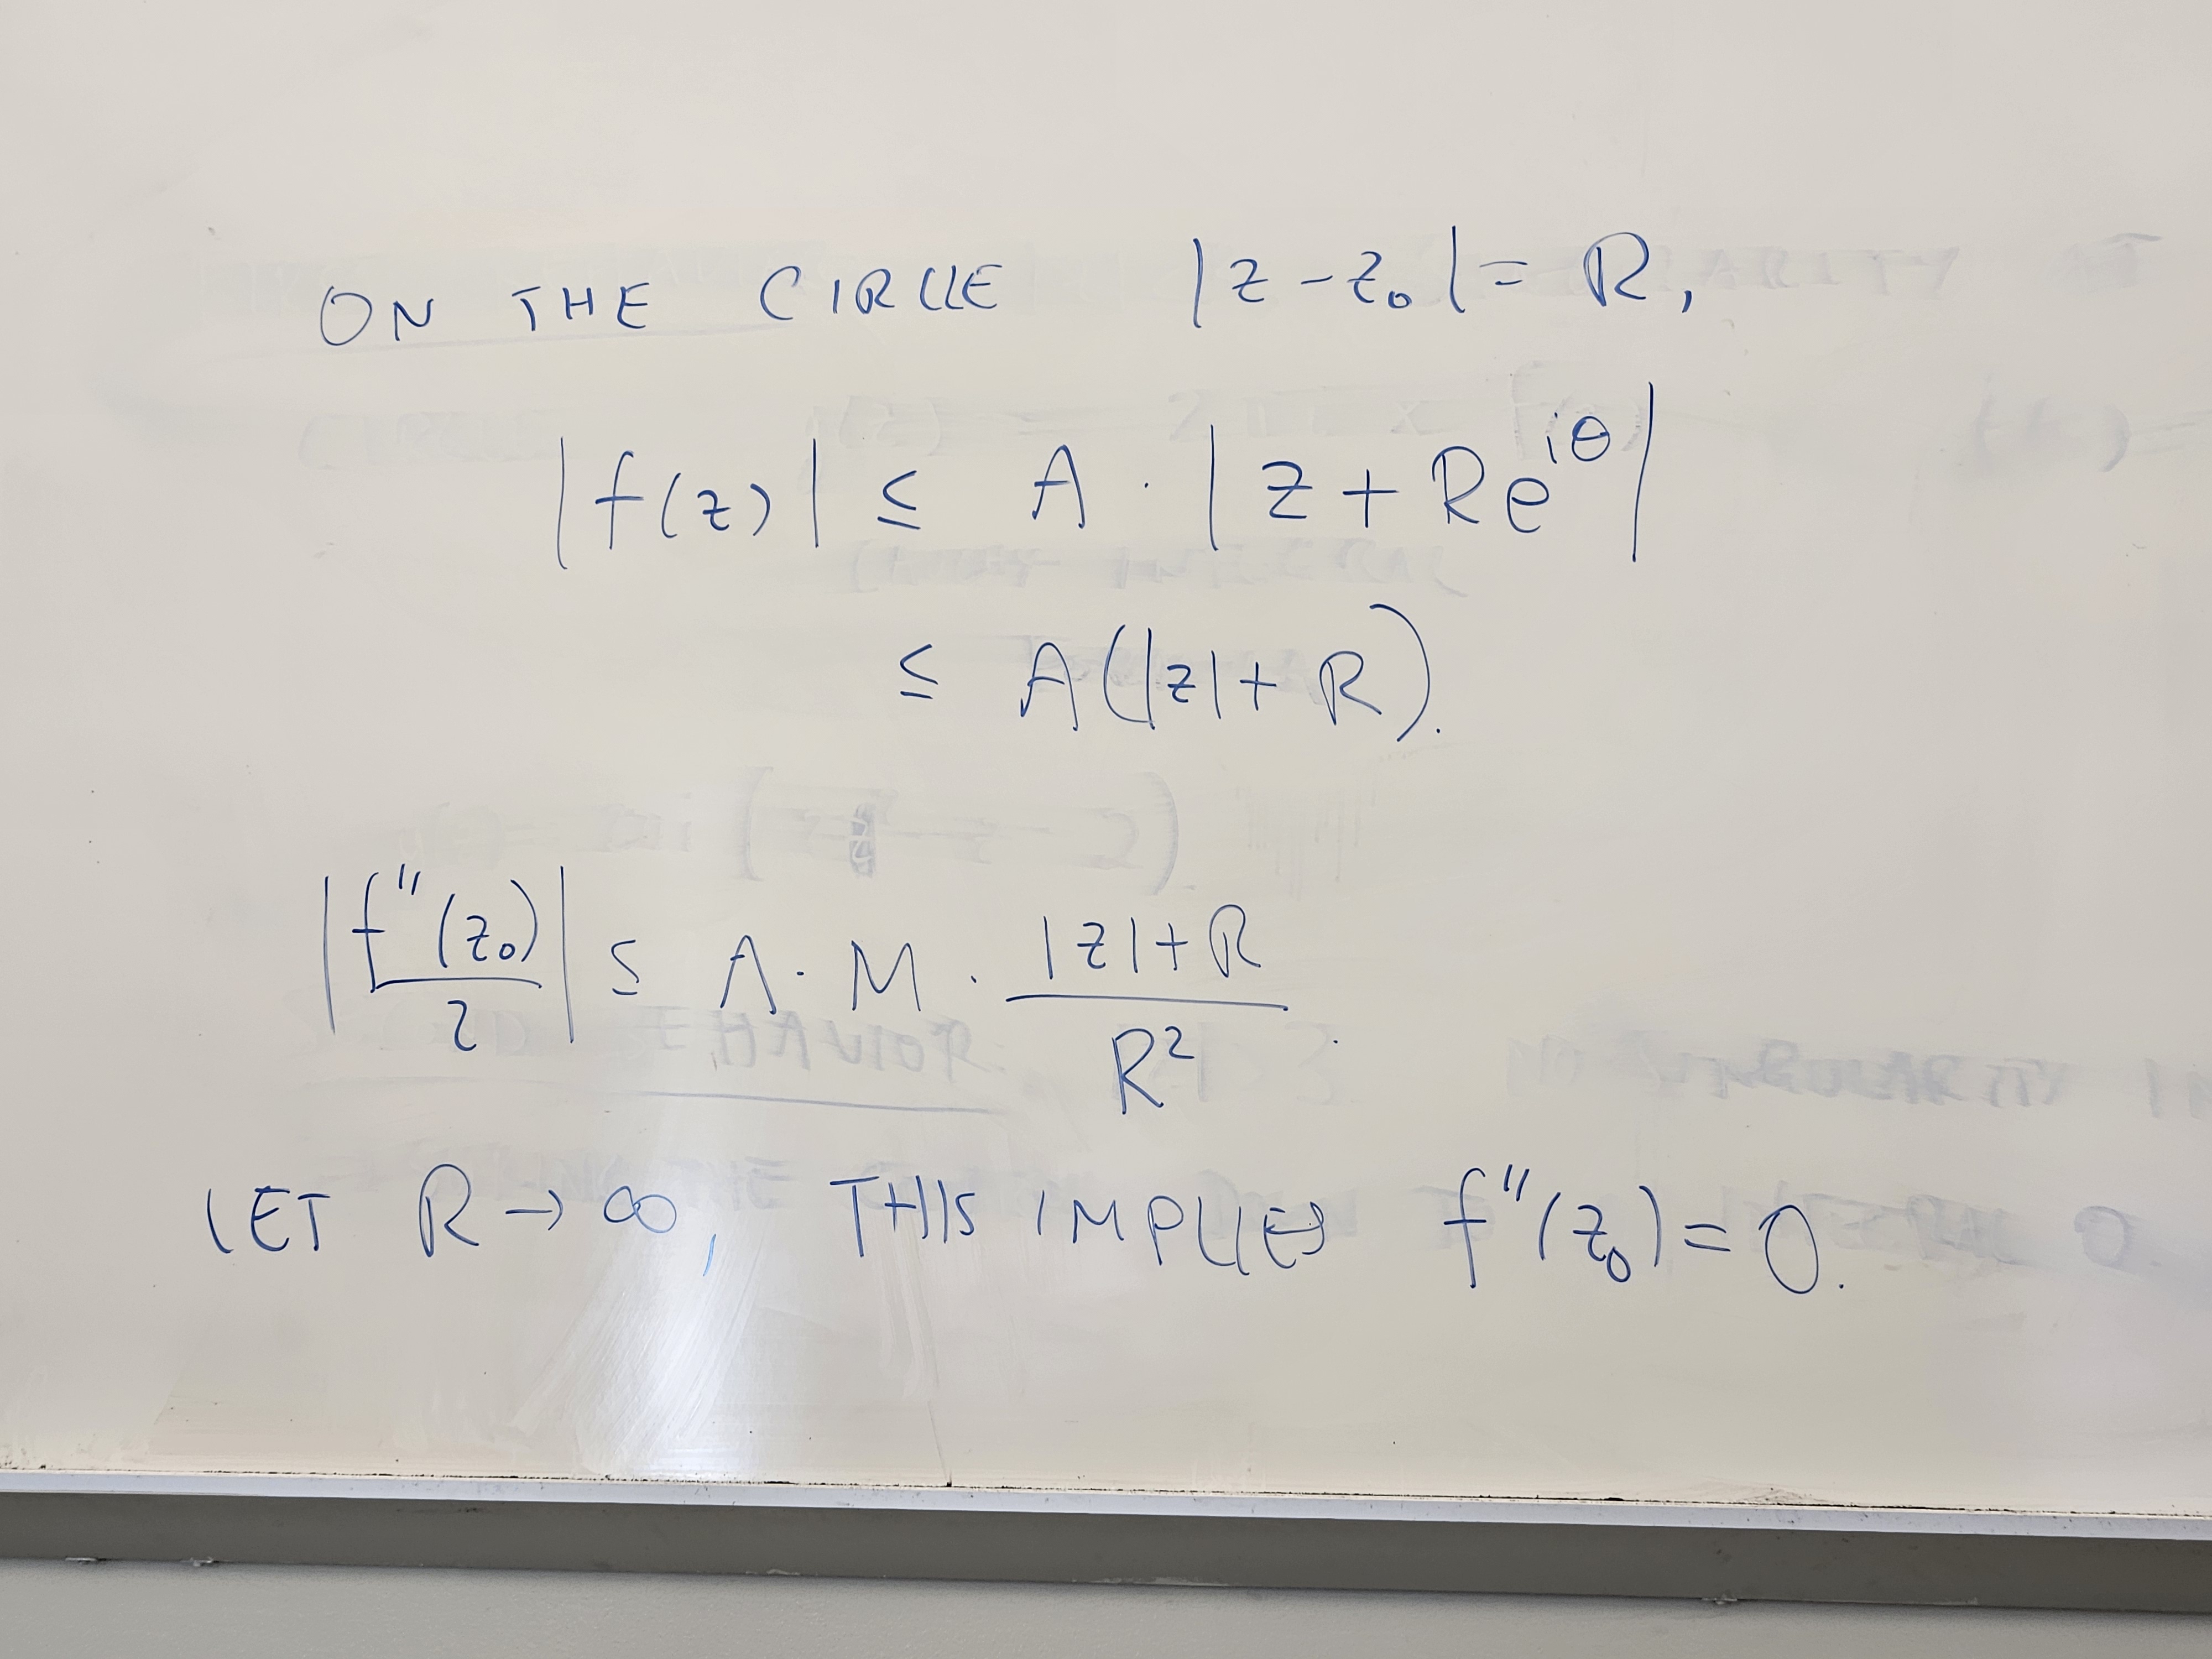 ON THE CIRCLE |z - z₀| = R,
|f(z)| ≤ A · |z + Re^{iθ}|
≤ A(|z| + R).
|f''(z₀)/2| ≤ A · M · (|z| + R)/R²
LET R → ∞, THIS IMPLIES f''(z₀) = 0.